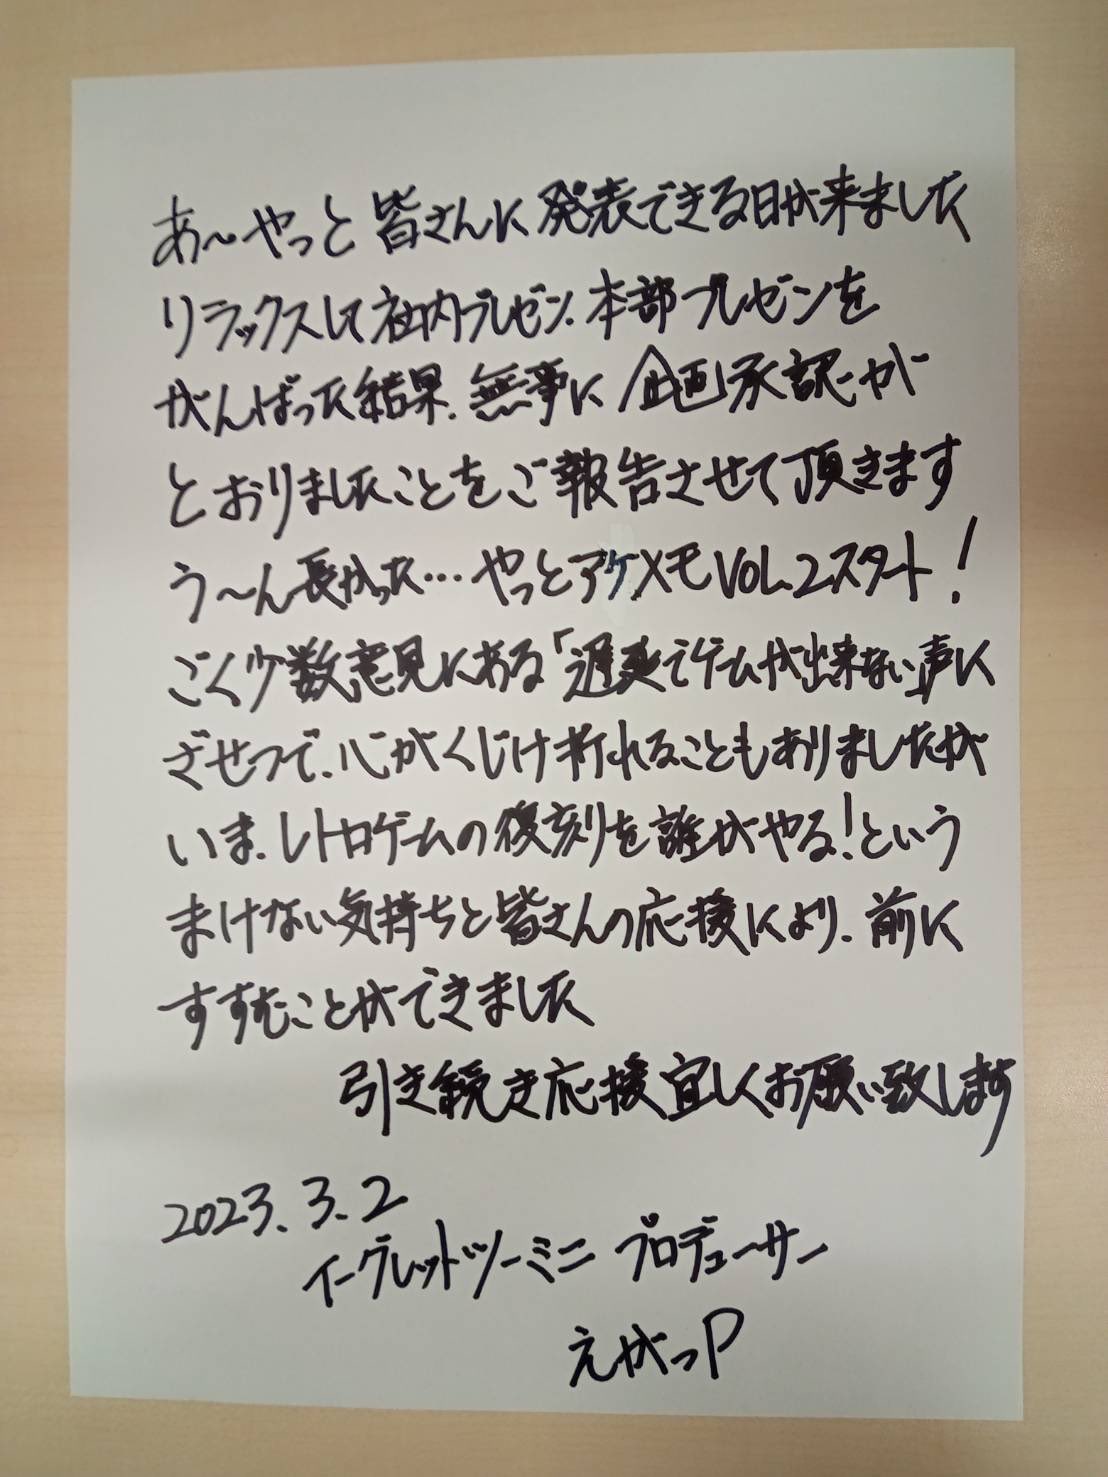 あ〜やっと皆さんに発表できる日が来ました
リラックスして社内プレゼン、本部プレゼンを
がんばった結果、無事に企画承認が
とおりましたことをご報告させて頂きます
う〜ん長かった…やっとアケメモVOL.2スタート!
ごく少数意見にある「遅延でゲームが出来ない」声に
ざせつで、心がくじけ折れることもありましたが
いま、レトロゲームの復刻を誰がやる!という
まけない気持ちと皆さんの応援により、前に
すすむことができました
引き続き応援宜しくお願い致します
2023.3.2
イーグレットツーミニ プロデューサー
えがっP